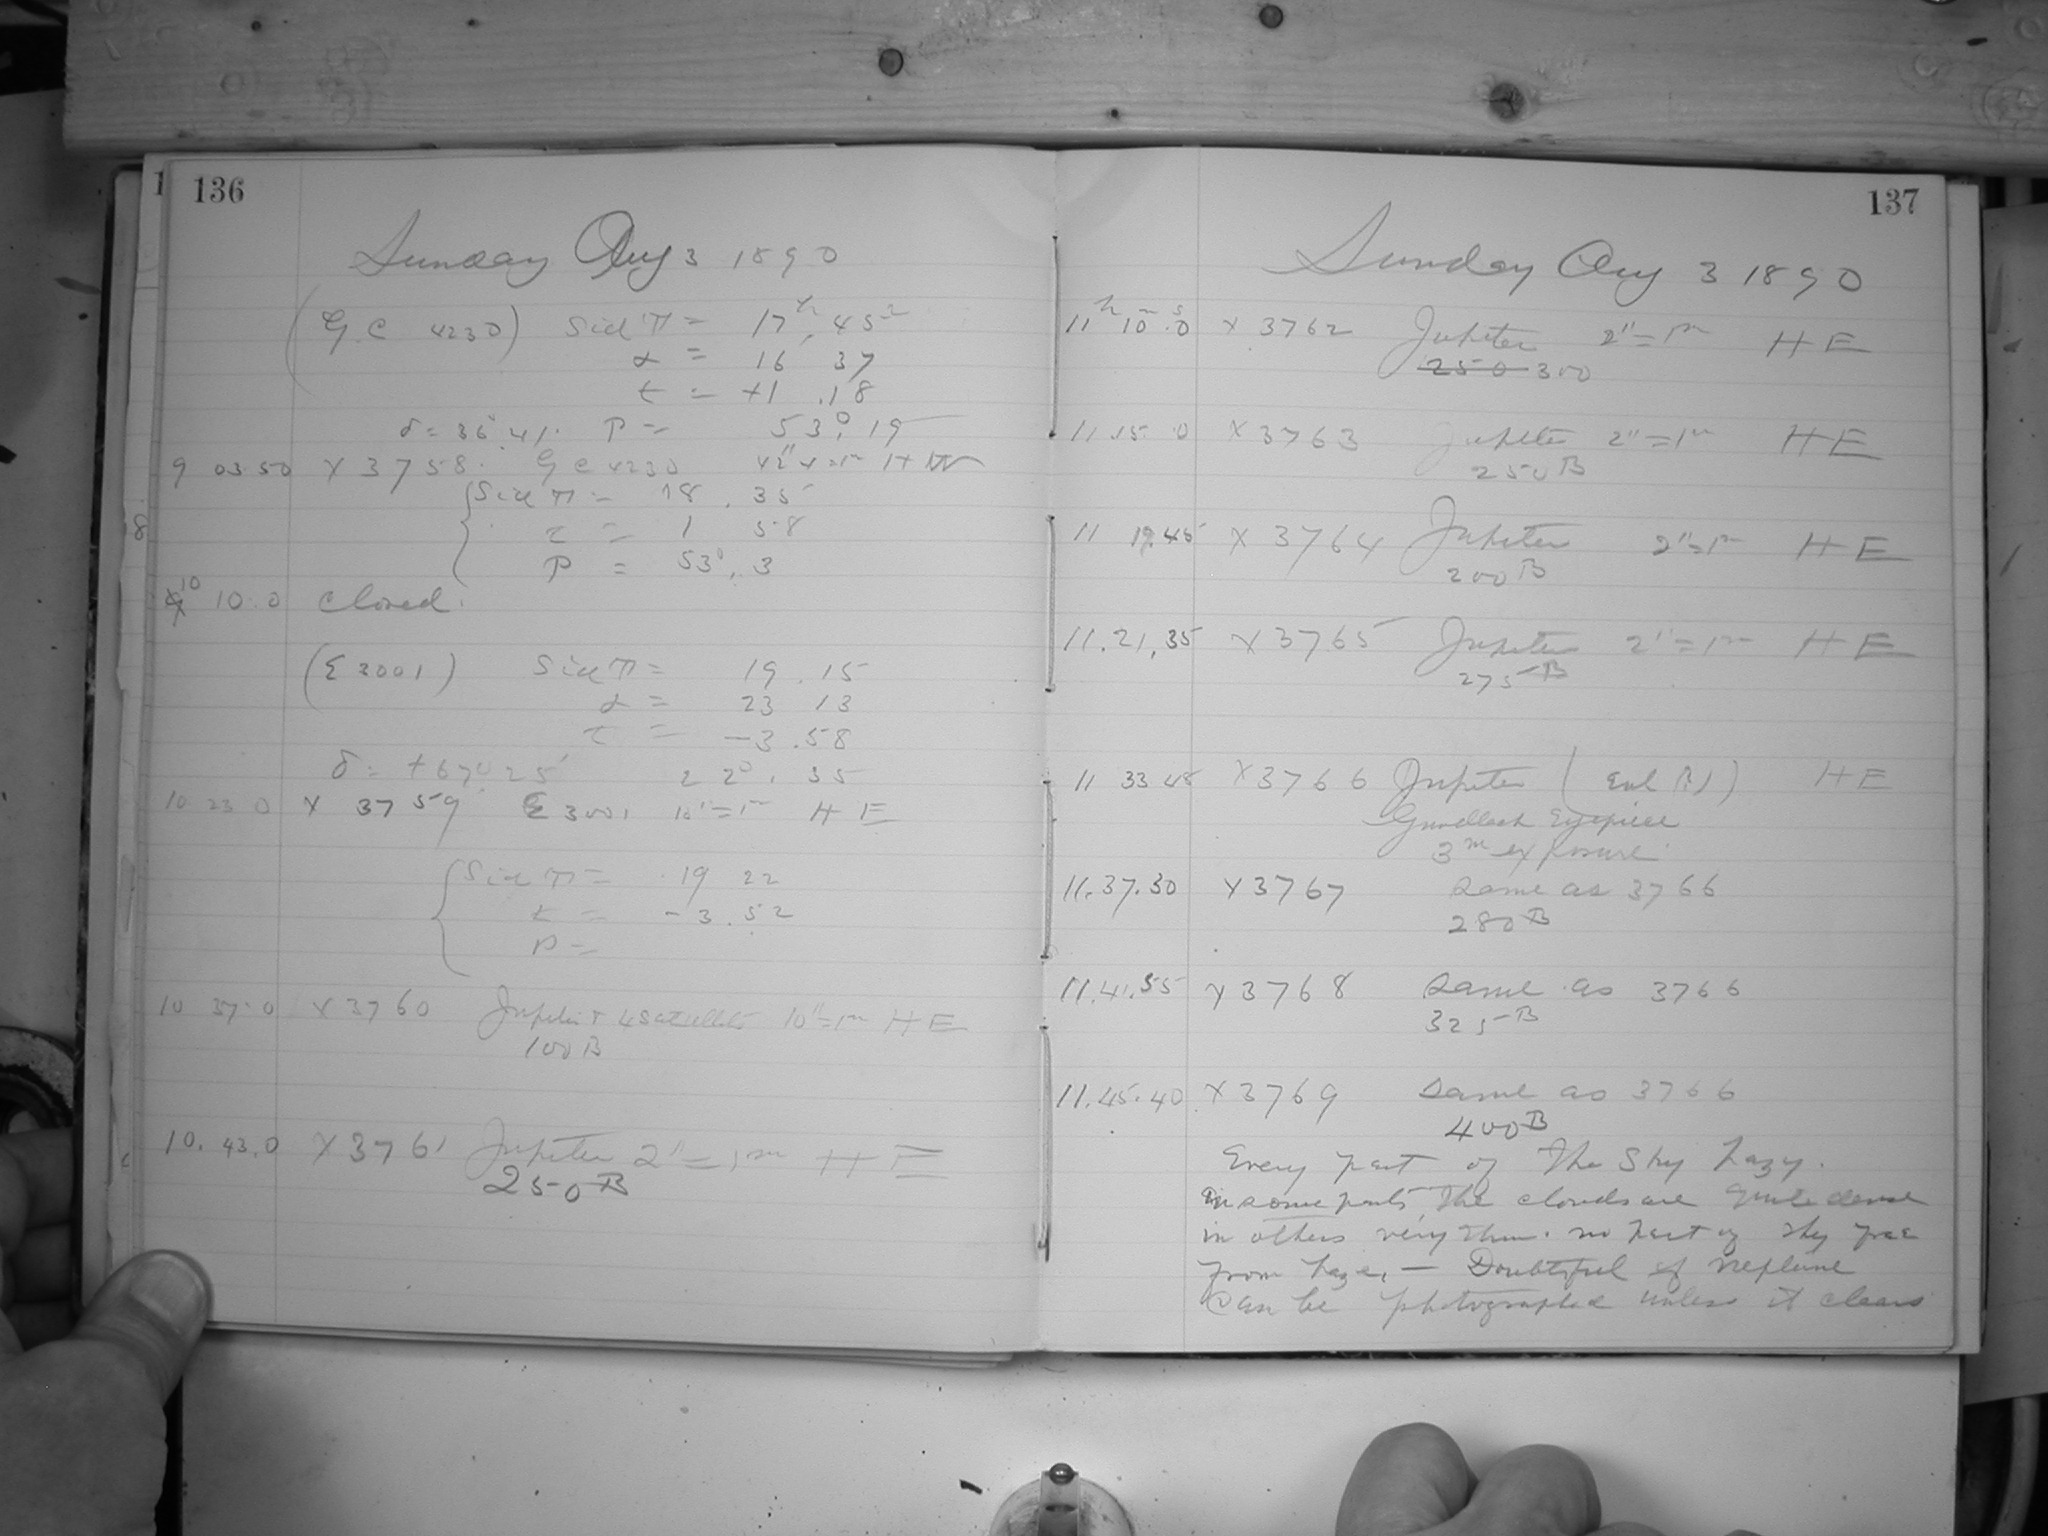 136
Sunday Aug 3 1890
(G.C 4230) Sid T = 17h. 45
α = 16 37
t = +1 .18
δ = 36° 41' P = 53°. 19
9 03 50 X 3758. G C 4230
Sid T = 18 . 35
τ = 1 58
P = 53°. 3
10 10.0 closed.
(Σ 3001) Sid T = 19 . 15
α = 23 13
τ = -3 .58
δ = +67° 25' 22°. 35
10 23 0 X 3759 Σ 3001 10"=1m H E
Sid T = 19 22
t = -3.52
P =
10 37.0 X 3760 Jupiter + 4 satellites 10"=1m H E
100 B
10. 43.0 X 3761 Jupiter 2"=1m H E
250 B
8
137
Sunday Aug 3 1890
11h 10m.0s X 3762 Jupiter 2"=1m H E
250 300
11.15.0 X 3763 Jupiter 2"=1m H E
250 B
11 19.45 X 3764 Jupiter 2"=1m H E
200 B
11.21,35 X 3765 Jupiter 2"=1m H E
275 B
11 33 45 X 3766 Jupiter (Enl ) H E
Gundlach Eyepiece
3m exposure
11.37.30 X 3767 same as 3766
280 B
11.41.55 X 3768 same as 3766
325 B
11.45.40 X 3769 same as 3766
400 B
Every part of the sky hazy.
in some parts the clouds are quite dense
in others very thin. no part of sky free
from haze, — Doubtful if Neptune
can be photographed unless it clears